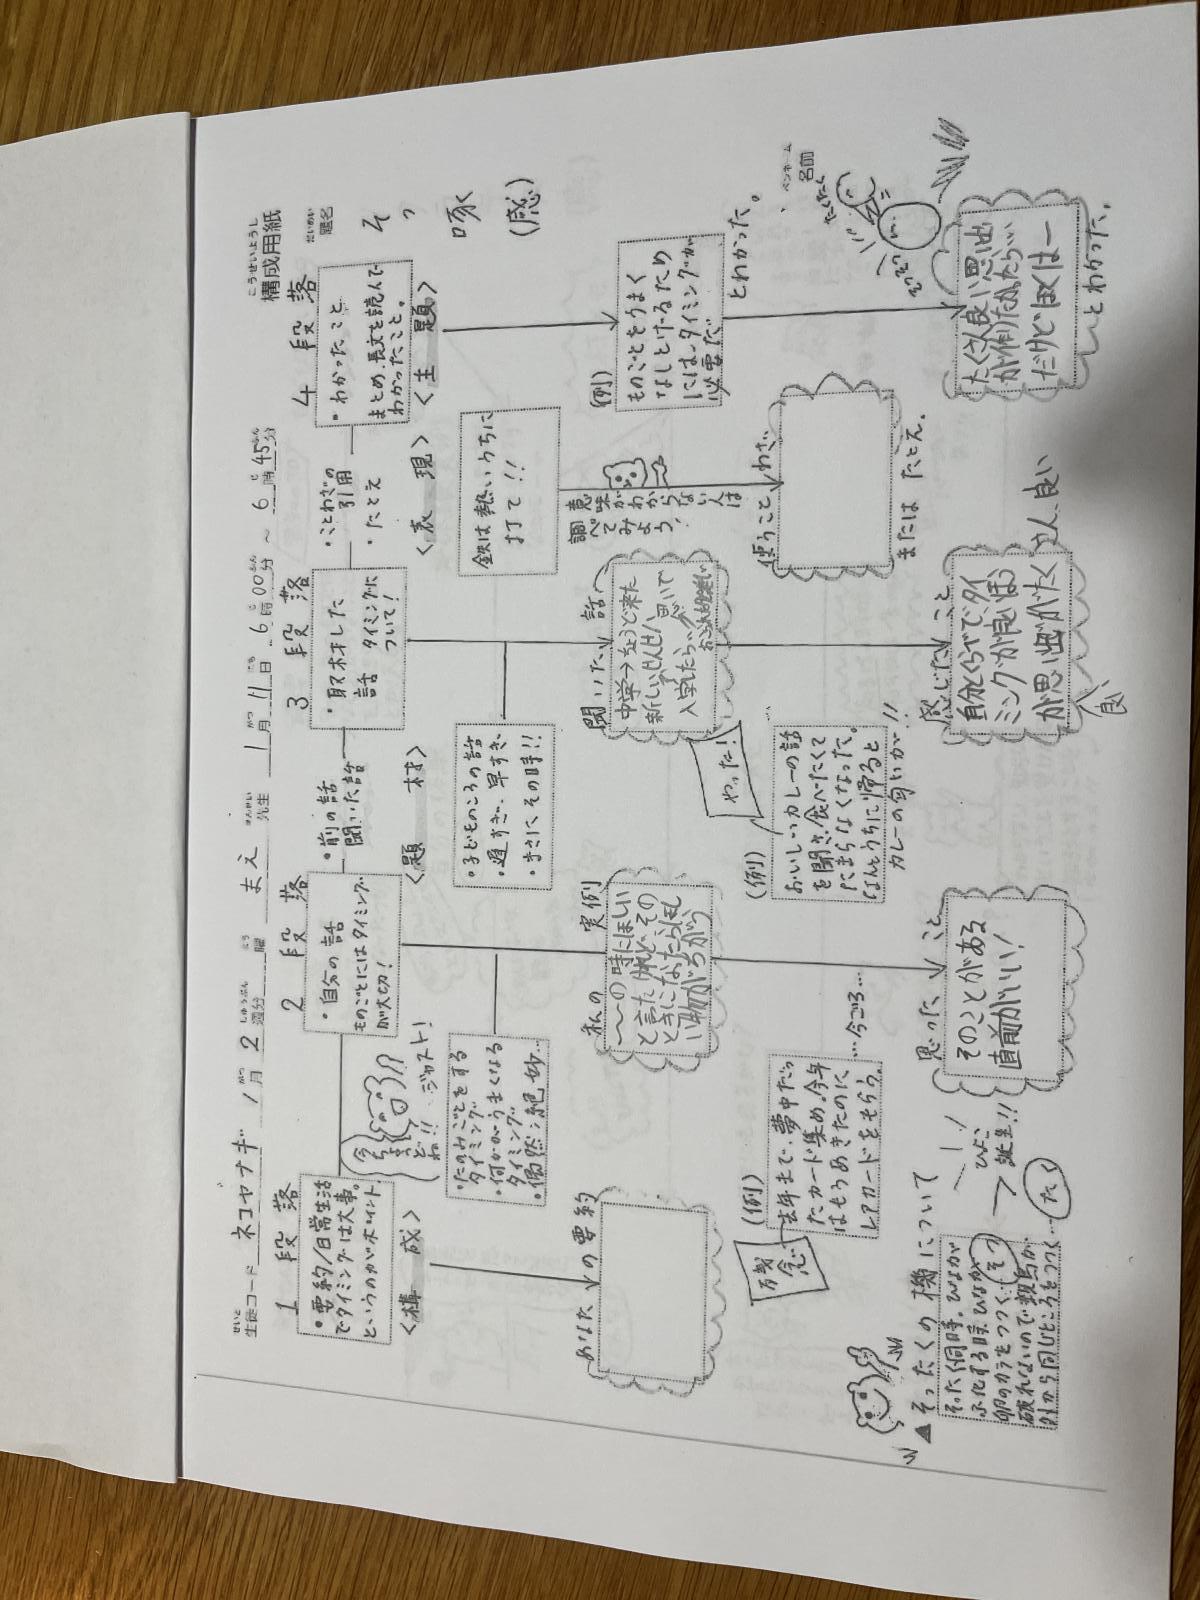 構成用紙
こうせいようし
生徒コード ネコヤナギ 1月 2 週分 まえ 先生 1月 11日 6時00分 ～ 6時45分
題名
だいめい
そっ
啄
(感)
ペンネーム
名前
1 段落
・要約/日常生活
でタイミングは大事。
というのがポイント。
〈構成〉
あなたの要約
2 段落
・自分の話
ものごとにはタイミング
が大切！
今
ちょう
どね!!
ジャスト！
・たのみごとをする
タイミング
・何かがうまくなる
タイミング
・偶然、絶妙…
私の実例
〜〜の時にほしい
と言たけれど、その
ときになったらほし
い物がちがう
(例)
去年まで、夢中だっ
たカード集め。今年
はもうあきたのに
レアカードをもらう。
…今ごろ…
残念
思ったこと
そのことがある
直前がいい！
・前の話
聞いた話
〈題材〉
3 段落
・取材した
話
タイミングに
ついて！
・子どものころの話
・遅すぎ、早すぎ、
・まさに、その時!!
聞いた話
中学→ちょうど来た
(例)
おいしいカレーの話
を聞き、食べたくて
たまらなくなった。
なんとうちに帰ると
カレーの匂いが!!
やった！
感じたこと
自分とくらべて、タイ
ミングが良いほう
が思い出がたく
さん、良い
良い
・ことわざの
引用
・たとえ
〈表現〉
鉄は熱いうちに
打て!!
意味がわからない人は
調べてみよう！
使うことわざ
または たとえ.
4 段落
・わかったこと
まとめ、長文を読んで
わかったこと。
〈主題〉
(例)
ものごとをうまく
なしとげるため
には、タイミングが
必要だ
とわかった。
たくさん良い思い出
が作りたかったら…
だけどぼくはー
とわかった.
▲そったくの機について
そったく同時。ひなが
ふ化する時、ひなが
卵のカラをつつく(そつ)
破れないので親鳥が
外から同じところをつつく…(たく)
→ ひよこ
誕生!!